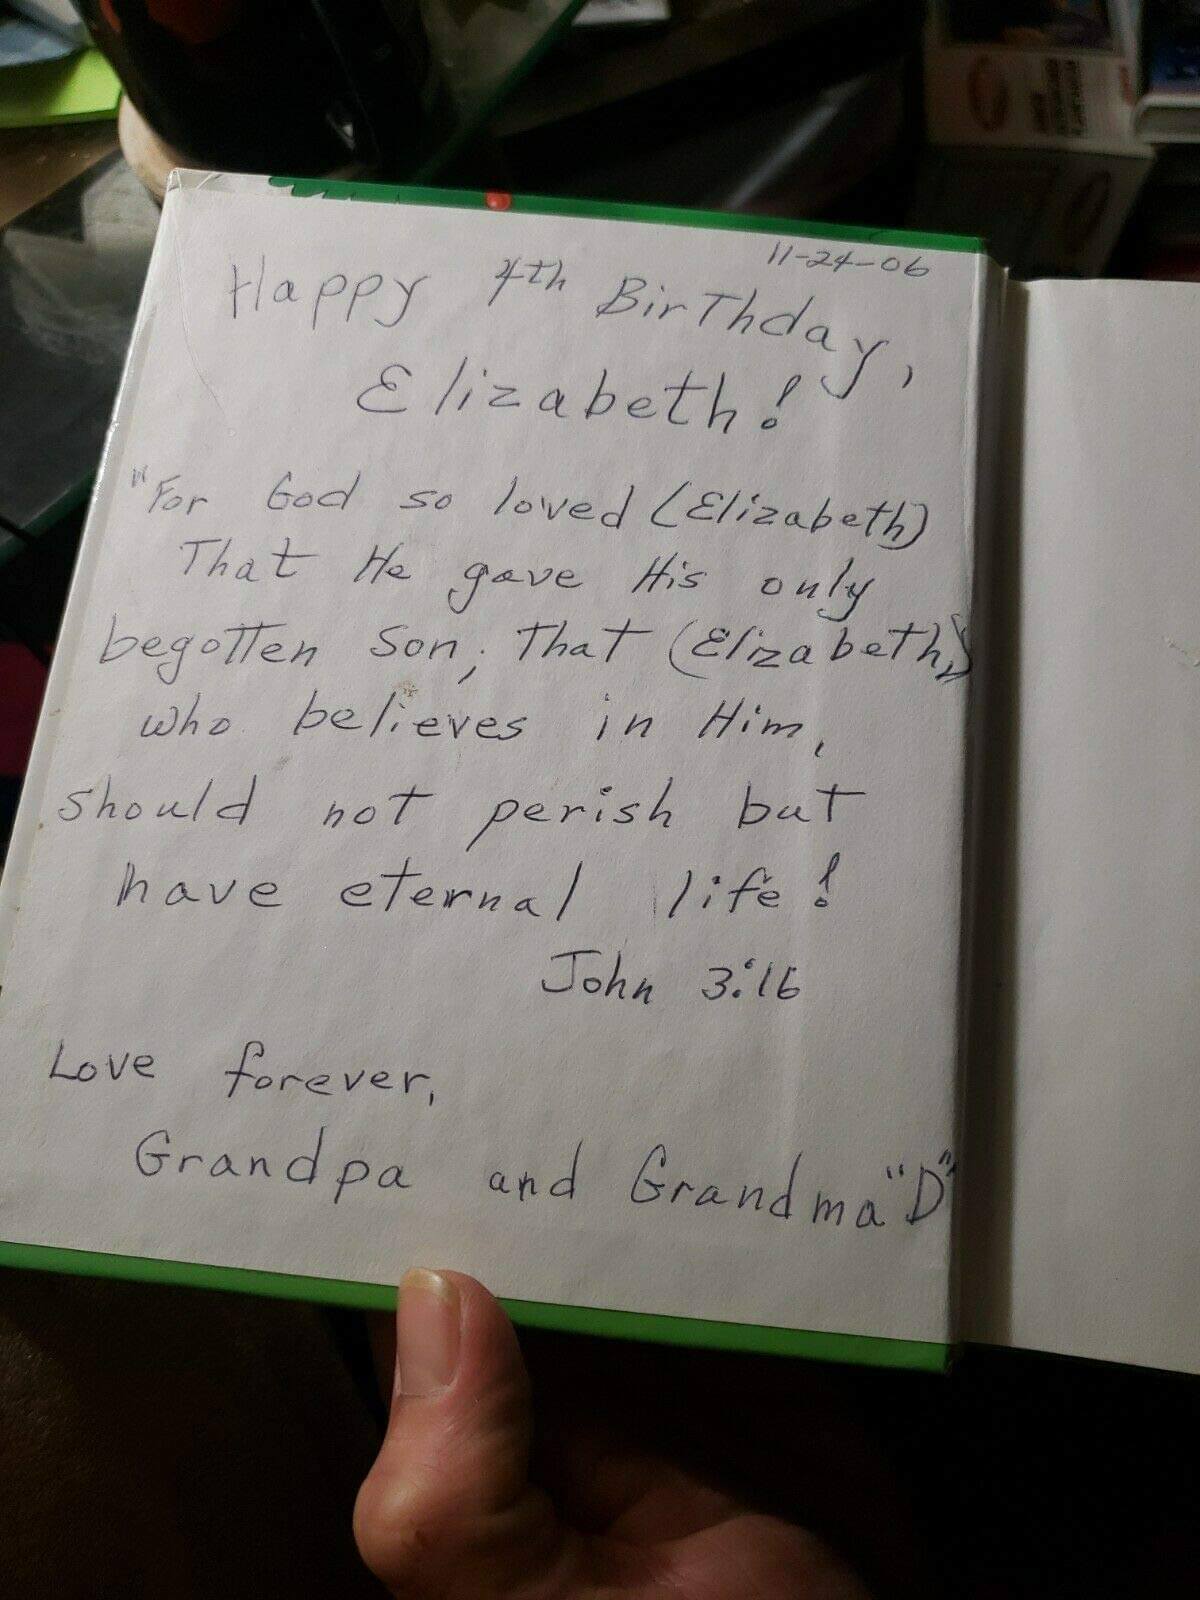 11-24-06
Happy 4th Birthday,
Elizabeth!
"For God so loved (Elizabeth)
That He gave His only
begotten Son, That (Elizabeth,)
who believes in Him,
should not perish but
have eternal life!
John 3:16
Love forever,
Grandpa and Grandma "D"